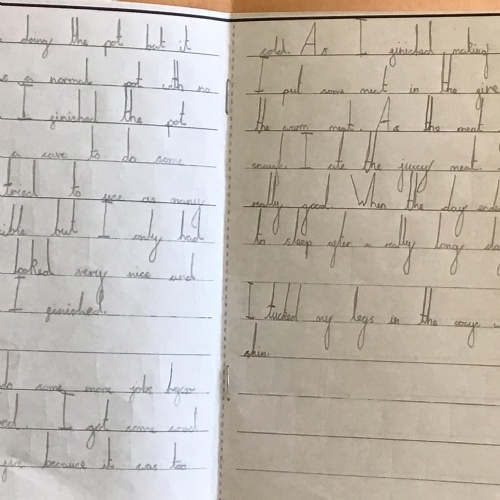 doing the pot but it
a normal pot with no
I ginished the pot
a cave to do some
to use as many
but I only had
looked very nice and
I ginished.
do some more jobs
I got some wood
give because it was too
cold. As I ginished making
I put some meat in the gire
the warm meat. As the meat
I ate the juicy meat.
really good. When the day
to sleep after a really long
I tucked my legs in the
skin.